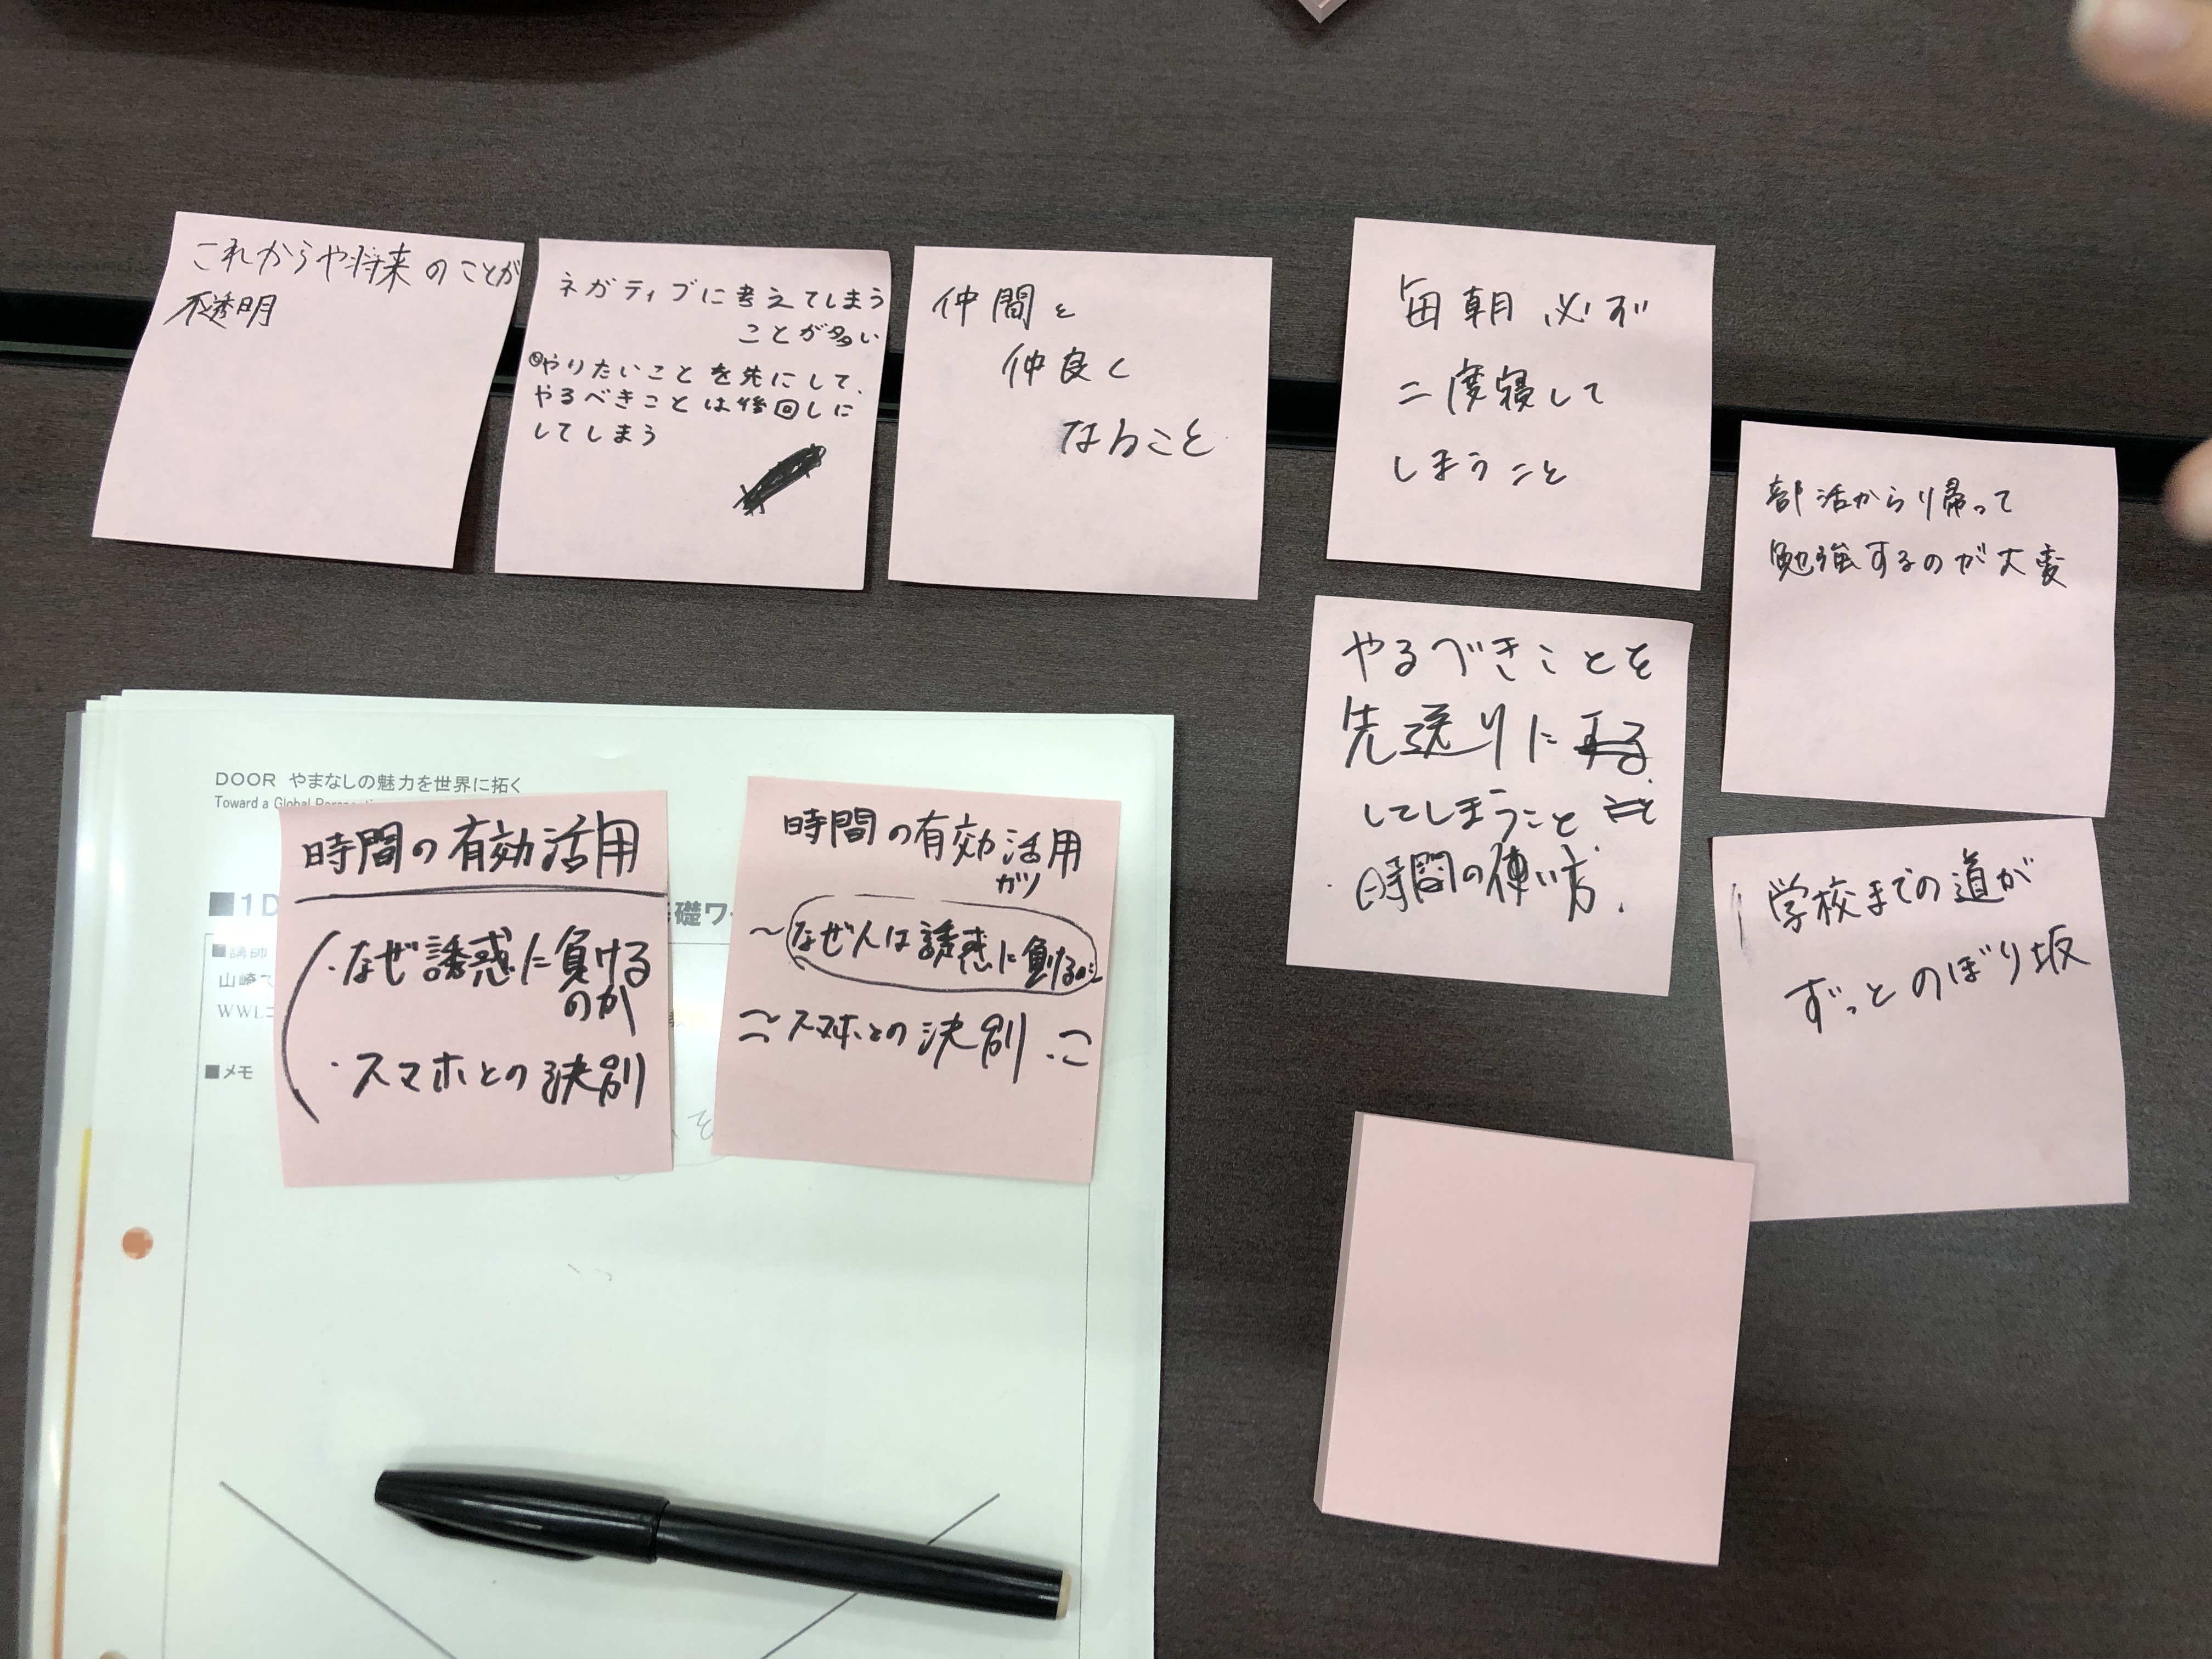 これからや将来のことが
不透明
ネガティブに考えてしまう
ことが多い
◎やりたいことを先にして、
やるべきことは後回しに
してしまう
仲間と
仲良く
なること
毎朝必ず
二度寝して
しまうこと
部活から帰って
勉強するのが大変
やるべきことを
先送りにする
してしまうこと
・時間の使い方.
学校までの道が
ずっとのぼり坂
DOOR やまなしの魅力を世界に拓く
Toward a Global
時間の有効活用
・なぜ誘惑に負ける
のか
・スマホとの決別
時間の有効活用
ガツ
〜なぜ人は誘惑に負けるのか
スマホとの決別
■1D
礎ワー
■講師
山崎
WWL
■メモ